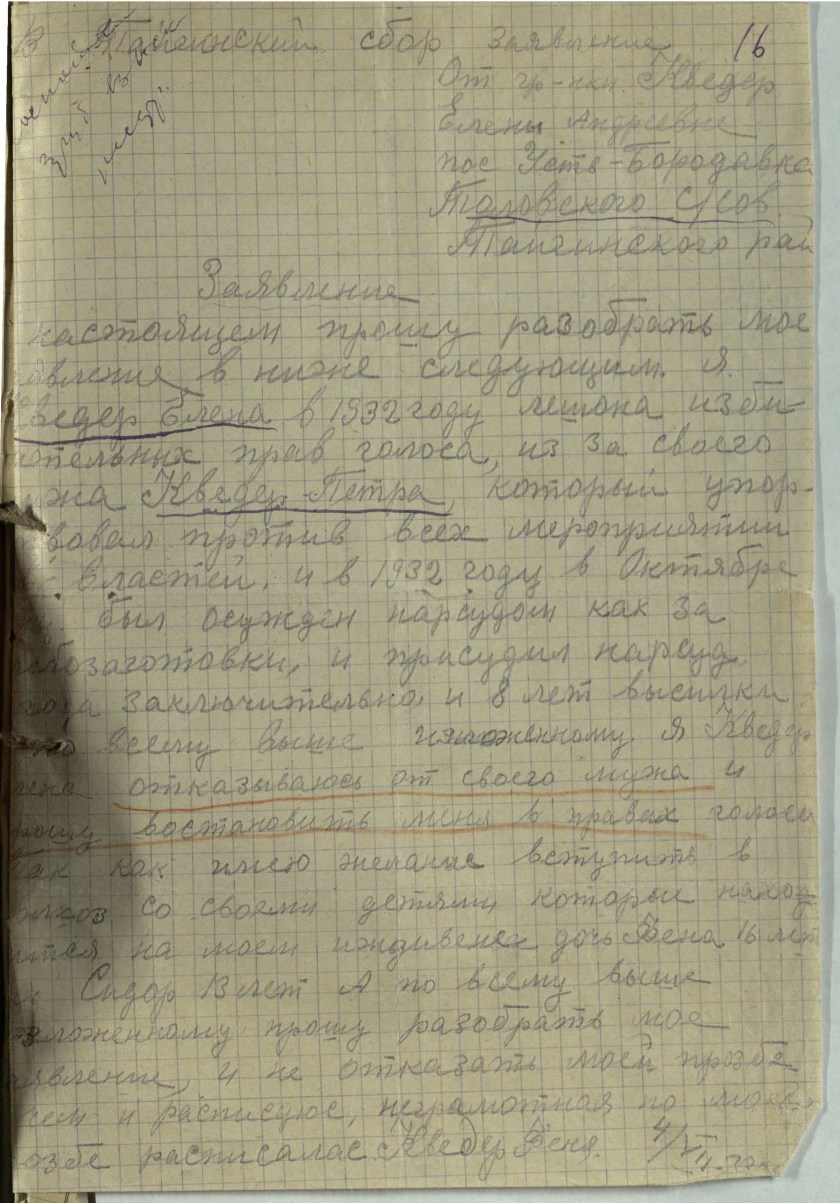 В Тайгинский сбор заявление 16
От гр-нки Кведер
Елены Андреевне
пос Усть-Бородавка
Таловского с/сов
Тайгинского рай
Заявление
настоящем прошу разобрать мое
явление в ниже следующим. Я.
ведер Елена в 1932 году лешона изби-
ательных прав голоса, из за своего
жа Кведер-Петра, который упор-
вовал против всех мероприятии
властей, и в 1932 году в Октябре
был осужден нарсудом как за
ебозаготовки, и присудил нарсуд
года заключительно и 8 лет высилки
по всему выше изложенному. я Кведер
лена отказываюсь от своего мужа и
рошу востановить меня в правах голоса
ак как имею желание вступить в
олхоз со своеми детями которые наход
ится на моем иждивенех дочь Фена 16 лет
Сидор 13 лет А по всему выше
зложенному прошу разобрать мое
явление, и не отказать моей прозбе
сем и расписуюс, неграмотная по моей
озбе расписалас Кведер Феня. 4/VII